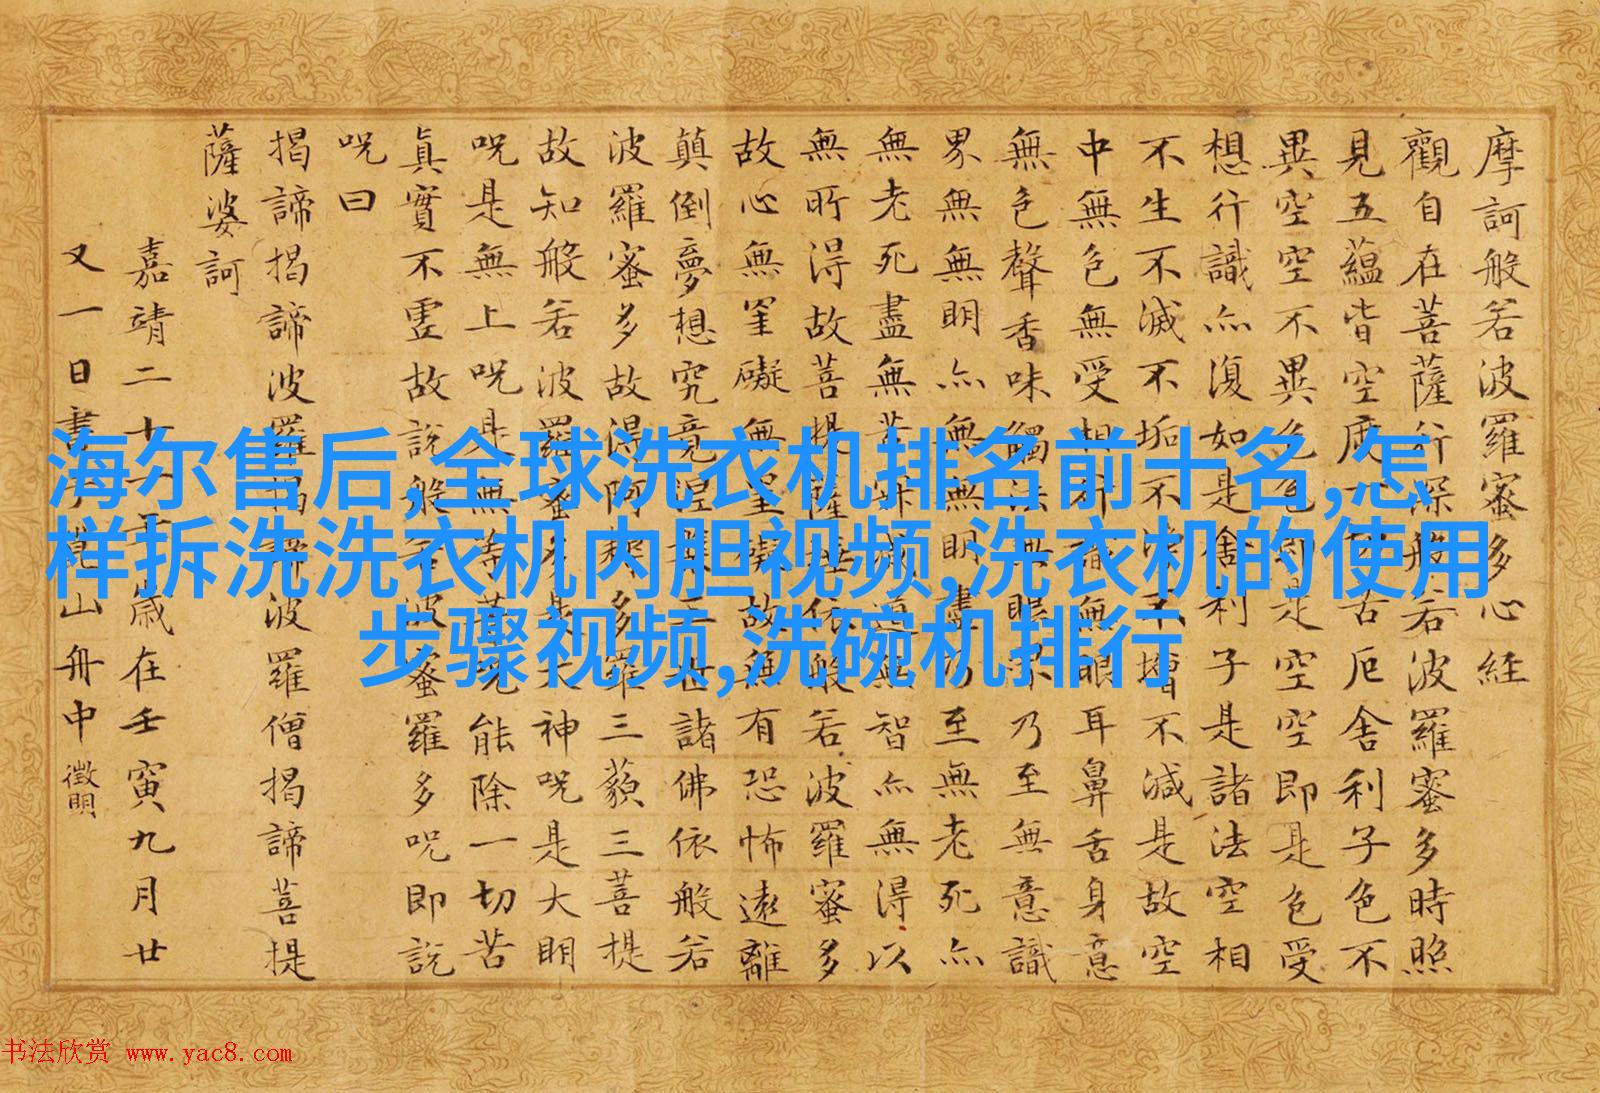 摩訶般若波羅蜜多心経
觀自在菩薩行深般若波羅蜜多時照
見五蘊皆空度一切苦厄舍利子色不
異空空不異色色即是空空即是色受
想行識亦復如是舍利子是諸法空相
不生不滅不垢不淨不增不減是故空
中無色無受想行識無眼耳鼻舌身意
無色聲香味觸法無眼界乃至無意識
界無無明亦無無明盡乃至無老死亦
無老死盡無苦集滅道無智亦無得以
無所得故菩提薩埵依般若波羅蜜多
故心無罣礙無罣礙故無有恐怖遠離
顛倒夢想究竟涅槃三世諸佛依般若
波羅蜜多故得阿耨多羅三藐三菩提
故知般若波羅蜜多是大神呪是大明
呪是無上呪是無等等呪能除一切苦
真實不虛故說般若波羅蜜多呪即說
呪曰
揭諦揭諦波羅揭諦波羅僧揭諦菩提
薩婆訶
嘉靖二十一年歲在壬寅九月廿
又一日書于崑山舟中 徵明
海尔售后,全球洗衣机排名前十名,怎
样拆洗洗衣机内胆视频,洗衣机的使用
步骤视频,洗碗机排行
书法欣赏 www.yac8.com